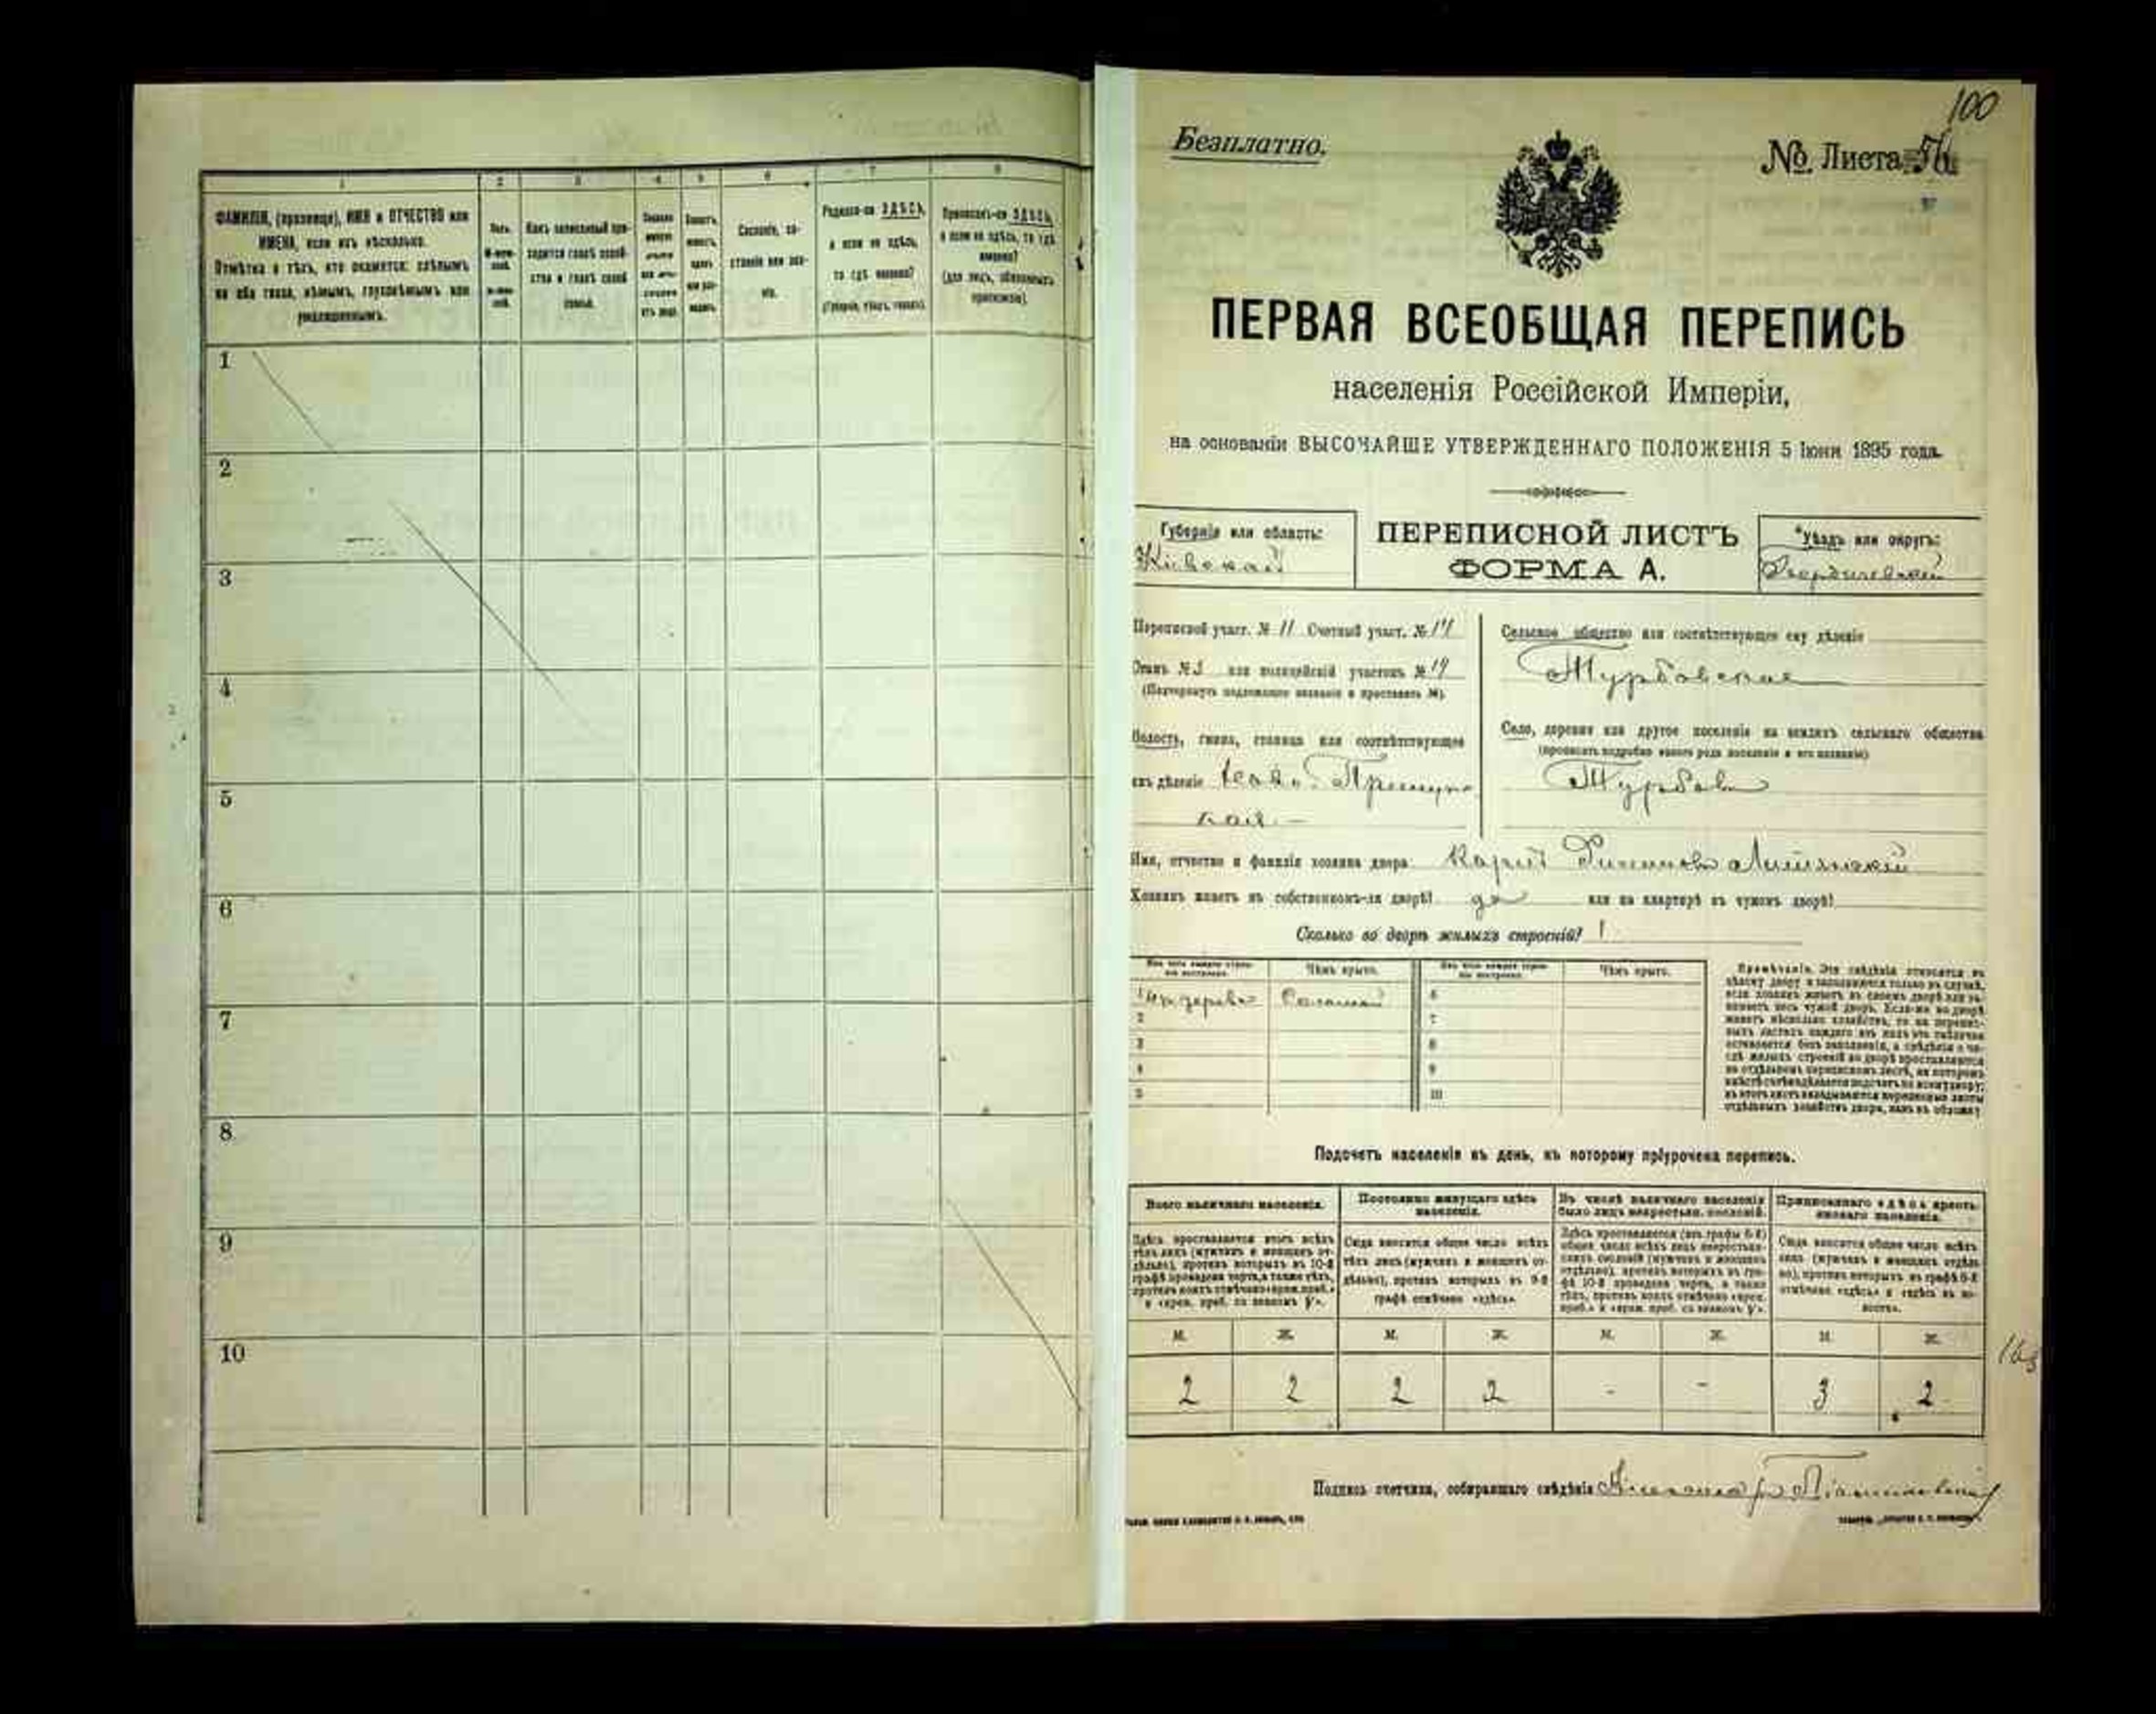 1 2 3 4 5 6 7 8
ФАМИЛІЯ, (прозвище), ИМЯ и ОТЧЕСТВО или
ИМЕНА, если ихъ нѣсколько.
Отмѣтка о тѣхъ, кто окажется: слѣпымъ
на оба глаза, нѣмымъ, глухонѣмымъ или
умалишеннымъ.
Полъ.
Какъ записанный при-
ходится главѣ хозяй-
ства и главѣ своей
семьи.
Сословіе, со-
стояніе или зва-
ніе.
Родился-ли ЗДѢСЬ,
а если не здѣсь,
то гдѣ именно?
(Губернія, уѣздъ, городъ).
Приписанъ-ли ЗДѢСЬ,
а если не здѣсь, то гдѣ
именно?
(для лицъ, обязанныхъ
припискою).
1
2
3
4
5
6
7
8
9
10
100
Безплатно.
№ Листа 56
ПЕРВАЯ ВСЕОБЩАЯ ПЕРЕПИСЬ
населенія Россійской Имперіи,
на основаніи ВЫСОЧАЙШЕ УТВЕРЖДЕННАГО ПОЛОЖЕНІЯ 5 Іюня 1895 года.
Губернія или область:
Кіевская
ПЕРЕПИСНОЙ ЛИСТЪ
ФОРМА А.
Уѣздъ или округъ:
Бердичевскій
Переписной участ. № 11 Счетный участ. № 14
Станъ № или полицейскій участокъ № 19
(Подчеркнуть надлежащее названіе и проставить №).
Волость, гмина, станица или соотвѣтствующее
имъ дѣленіе Ново-Прилук-
кая
Сельское общество или соотвѣтствующее ему дѣленіе
Турбовское
Село, деревня или другое поселеніе на земляхъ сельскаго общества
(прописать подробно какого рода поселеніе и его названіе)
Турбовъ
Имя, отчество и фамилія хозяина двора:
Хозяинъ живетъ въ собственномъ-ли дворѣ? да или на квартирѣ въ чужомъ дворѣ?
Сколько во дворѣ жилыхъ строеній? 1
Изъ чего каждое строе-
ніе построено. Чѣмъ крыто. Изъ чего каждое строе-
ніе построено. Чѣмъ крыто.
1 Изъ дерева Соломой 6
2 7
3 8
4 9
5 10
Примѣчаніе. Эти свѣдѣнія относятся къ
цѣлому двору и заполняются только въ случаѣ,
если хозяинъ живетъ въ своемъ дворѣ или за-
нимаетъ весь чужой дворъ. Если-же во дворѣ
живетъ нѣсколько хозяйствъ, то на перепис-
ныхъ листахъ каждаго изъ нихъ эта табличка
оставляется безъ заполненія, а свѣдѣнія о чи-
слѣ жилыхъ строеній во дворѣ проставляются
на отдѣльномъ переписномъ листѣ, на которомъ
вмѣстѣ съ тѣмъ дѣлается подсчетъ по всему двору;
въ этотъ листъ вкладываются переписные листы
отдѣльныхъ хозяйствъ двора, какъ въ обложку
Подсчетъ населенія въ день, къ которому пріурочена перепись.
Всего наличнаго населенія.
Постоянно живущаго здѣсь
населенія.
Въ числѣ наличнаго населенія
было лицъ некрестьян. сословій.
Приписаннаго здѣсь кресть-
янскаго населенія.
Здѣсь проставляется итогъ всѣхъ
тѣхъ лицъ (мужчинъ и женщинъ от-
дѣльно), противъ которыхъ въ 10-й
графѣ проведена черта, а также тѣхъ,
противъ коихъ отмѣчено «врем. преб.»
Сюда вносится общее число всѣхъ
тѣхъ лицъ (мужчинъ и женщинъ от-
дѣльно), противъ которыхъ въ 9-й
графѣ отмѣчено «здѣсь».
Здѣсь проставляется (изъ графы 6-й)
общее число всѣхъ лицъ некрестьян-
скихъ сословій (мужчинъ и женщинъ
отдѣльно), противъ которыхъ въ гра-
фѣ 10-й проведена черта, а также
тѣхъ, противъ коихъ отмѣчено «врем.
Сюда вносится общее число всѣхъ
лицъ (мужчинъ и женщинъ отдѣль-
но), противъ которыхъ въ графѣ 8-й
отмѣчено «здѣсь» и «здѣсь въ во-
лости».
М. Ж. М. Ж. М. Ж. М. Ж.
2 2 2 2 - - 3 2
Подпись счетчика, собиравшаго свѣдѣнія